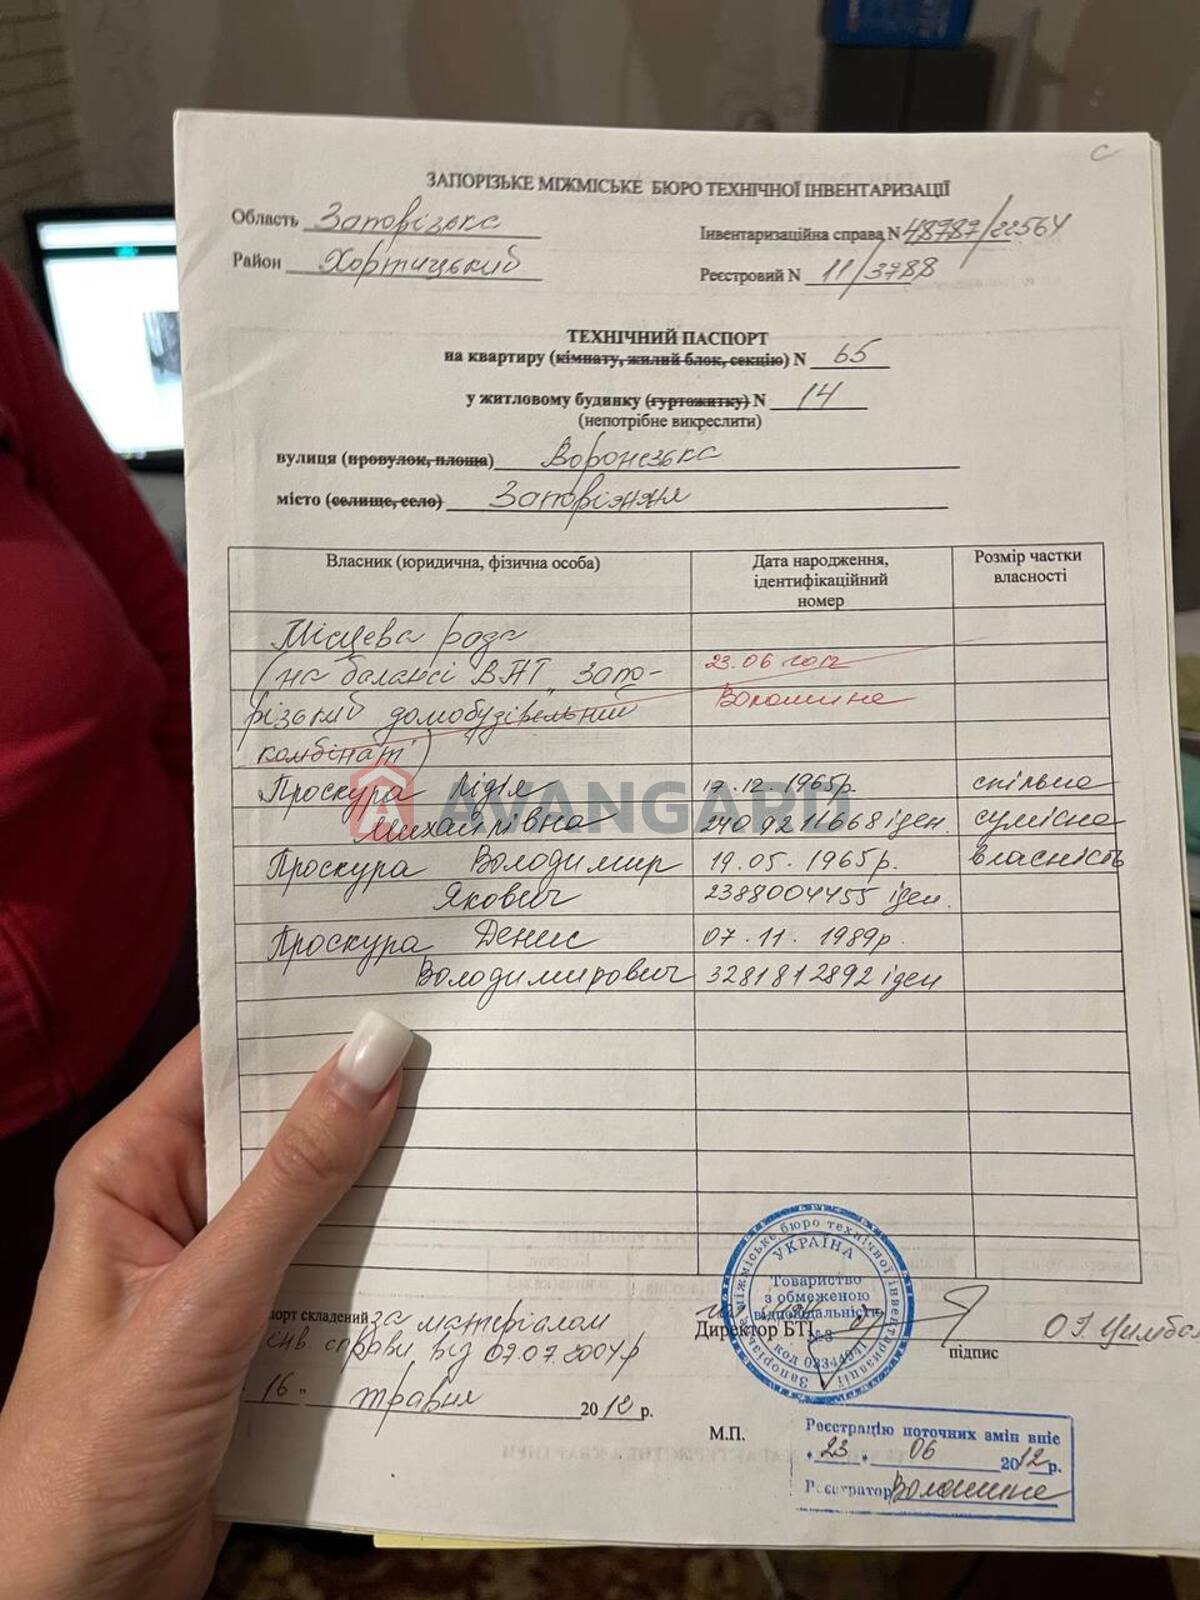 с
ЗАПОРІЗЬКЕ МІЖМІСЬКЕ БЮРО ТЕХНІЧНОЇ ІНВЕНТАРИЗАЦІЇ
Область Запорізька
Інвентаризаційна справа N 48787/22564
Район Хортицький
Реєстровий N 11/3788
ТЕХНІЧНИЙ ПАСПОРТ
на квартиру (кімнату, жилий блок, секцію) N 65
у житловому будинку (гуртожитку) N 14
(непотрібне викреслити)
вулиця (провулок, площа) Воронезька
місто (селище, село) Запоріжжя
Власник (юридична, фізична особа) Дата народження, ідентифікаційний номер Розмір частки власності
Місцева рада
(на балансі ВАТ „Запо- 23.06.2012
різький домобудівельний Волошина
комбінат")
Проскура Лідія 17.12.1965р. спільна
AVANGARD
Михайлівна 2409211668 іден. сумісна
Проскура Володимир 19.05.1965р. власність
Якович 2388004455 іден.
Проскура Денис 07.11.1989р.
Володимирович 3281812892 іден
Запорізьке міжміське бюро технічної інвентаризації
УКРАЇНА
Товариство
з обмеженою
відповідальністю
№3
порт складений за матеріалом
Директор БТІ
інв. справи від 07.07.2004р
підпис
16 травня 2012 р.
М.П.
Реєстрацію поточних змін вніс
23 06 2012 р.
Реєстратор Волошина